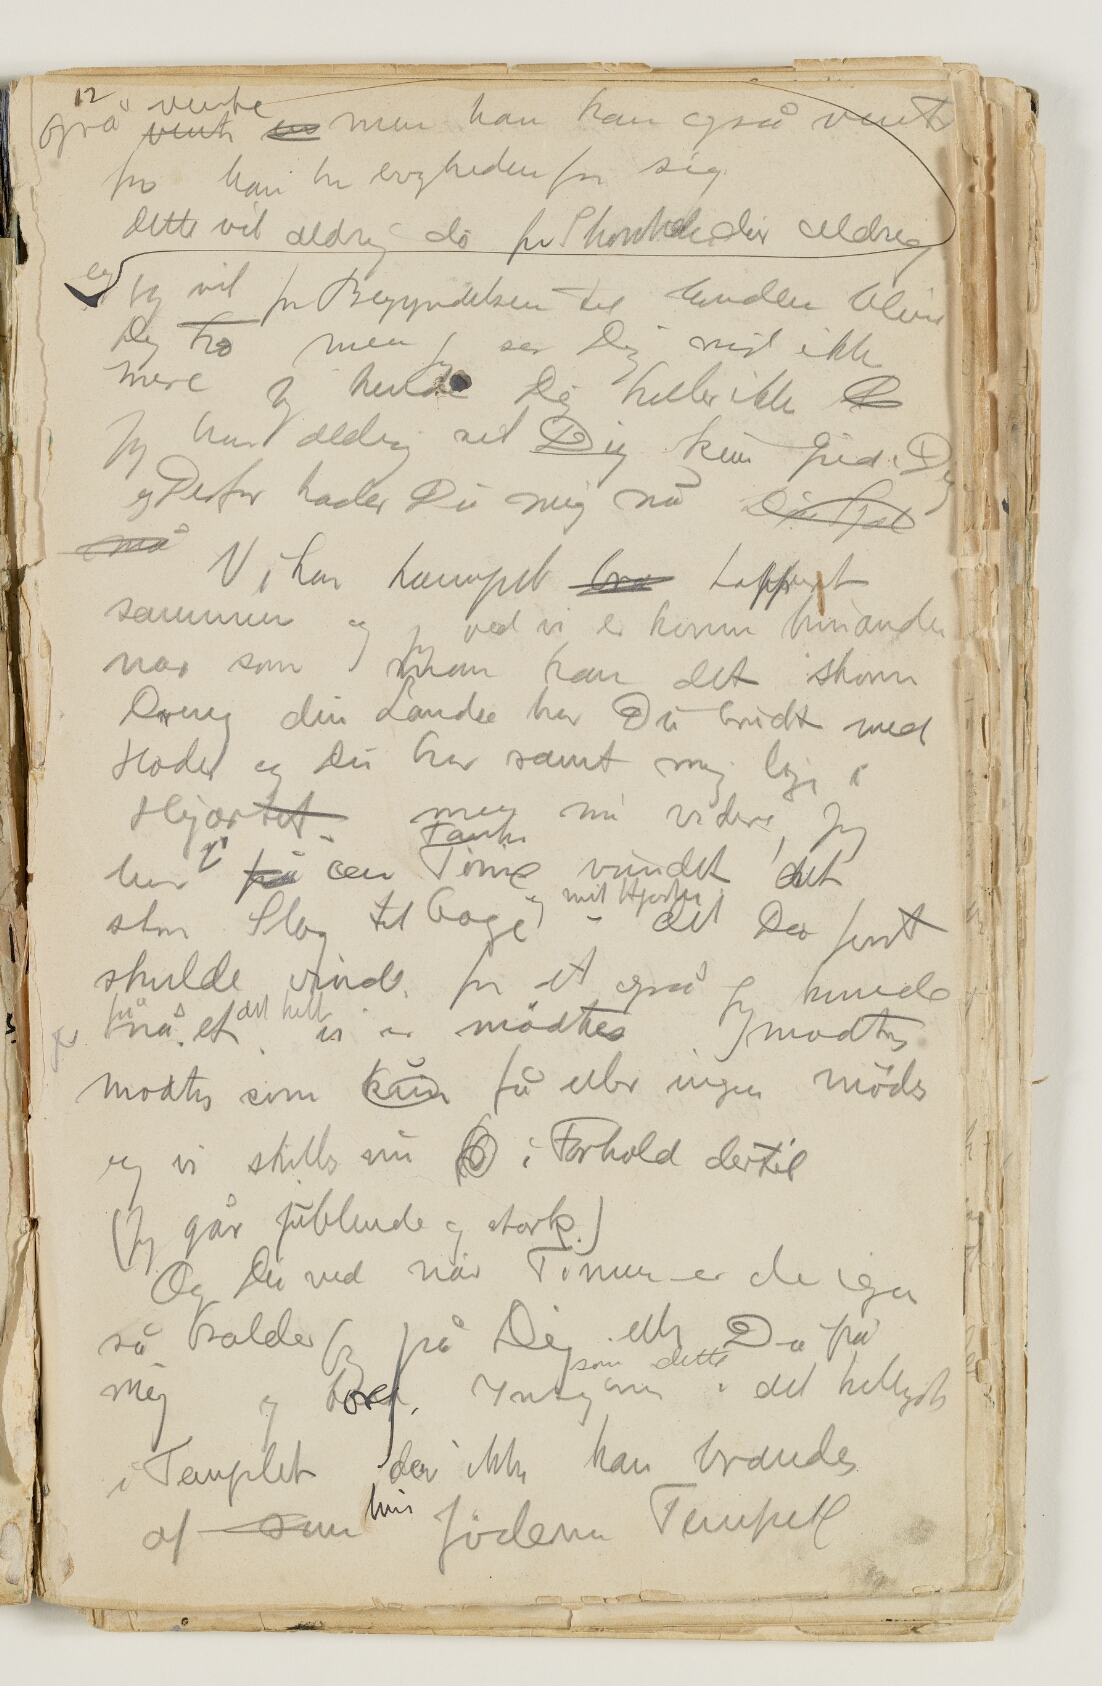 12
også vente vente en men han kan også vente
for han har evigheden for sig
dette vil aldrig dö for Skönhed dör aldrig
og jeg vil fra Begyndelsen til Enden blive
Dig tro men jeg ser Dig vist ikke
mere jeg kender Dig heller ikke D
Jeg har aldrig set Dig kun Gud i Dig
og Derfor hader Du mig nå
må
Vi har kæmpet bra tappert
sammen og jeg ved vi er komne hinanden
nær som man kan det skönne
Dreng din Landse har Du brudt med
Hoder og Du har ramt mig lige i
Hjærtet men nu videre, Jeg
har i på een Time Tanke vundet det
store Slag tilbage og mit Hjerte det Der först
skulde vindes for at også jeg kunde
få nå et det hele vi er mödtes mödtes
mödtes som kun få eller ingen mödes
og vi skilles nu i Forhold dertil
(Jeg går jublende og stærk.)
Og Du ved når Timen er de igen
så kalder jeg på Dig eller Du på
mig og som dette i det helligste
i Templet der ikke kan brændes
af som hin Jödernes Tempel